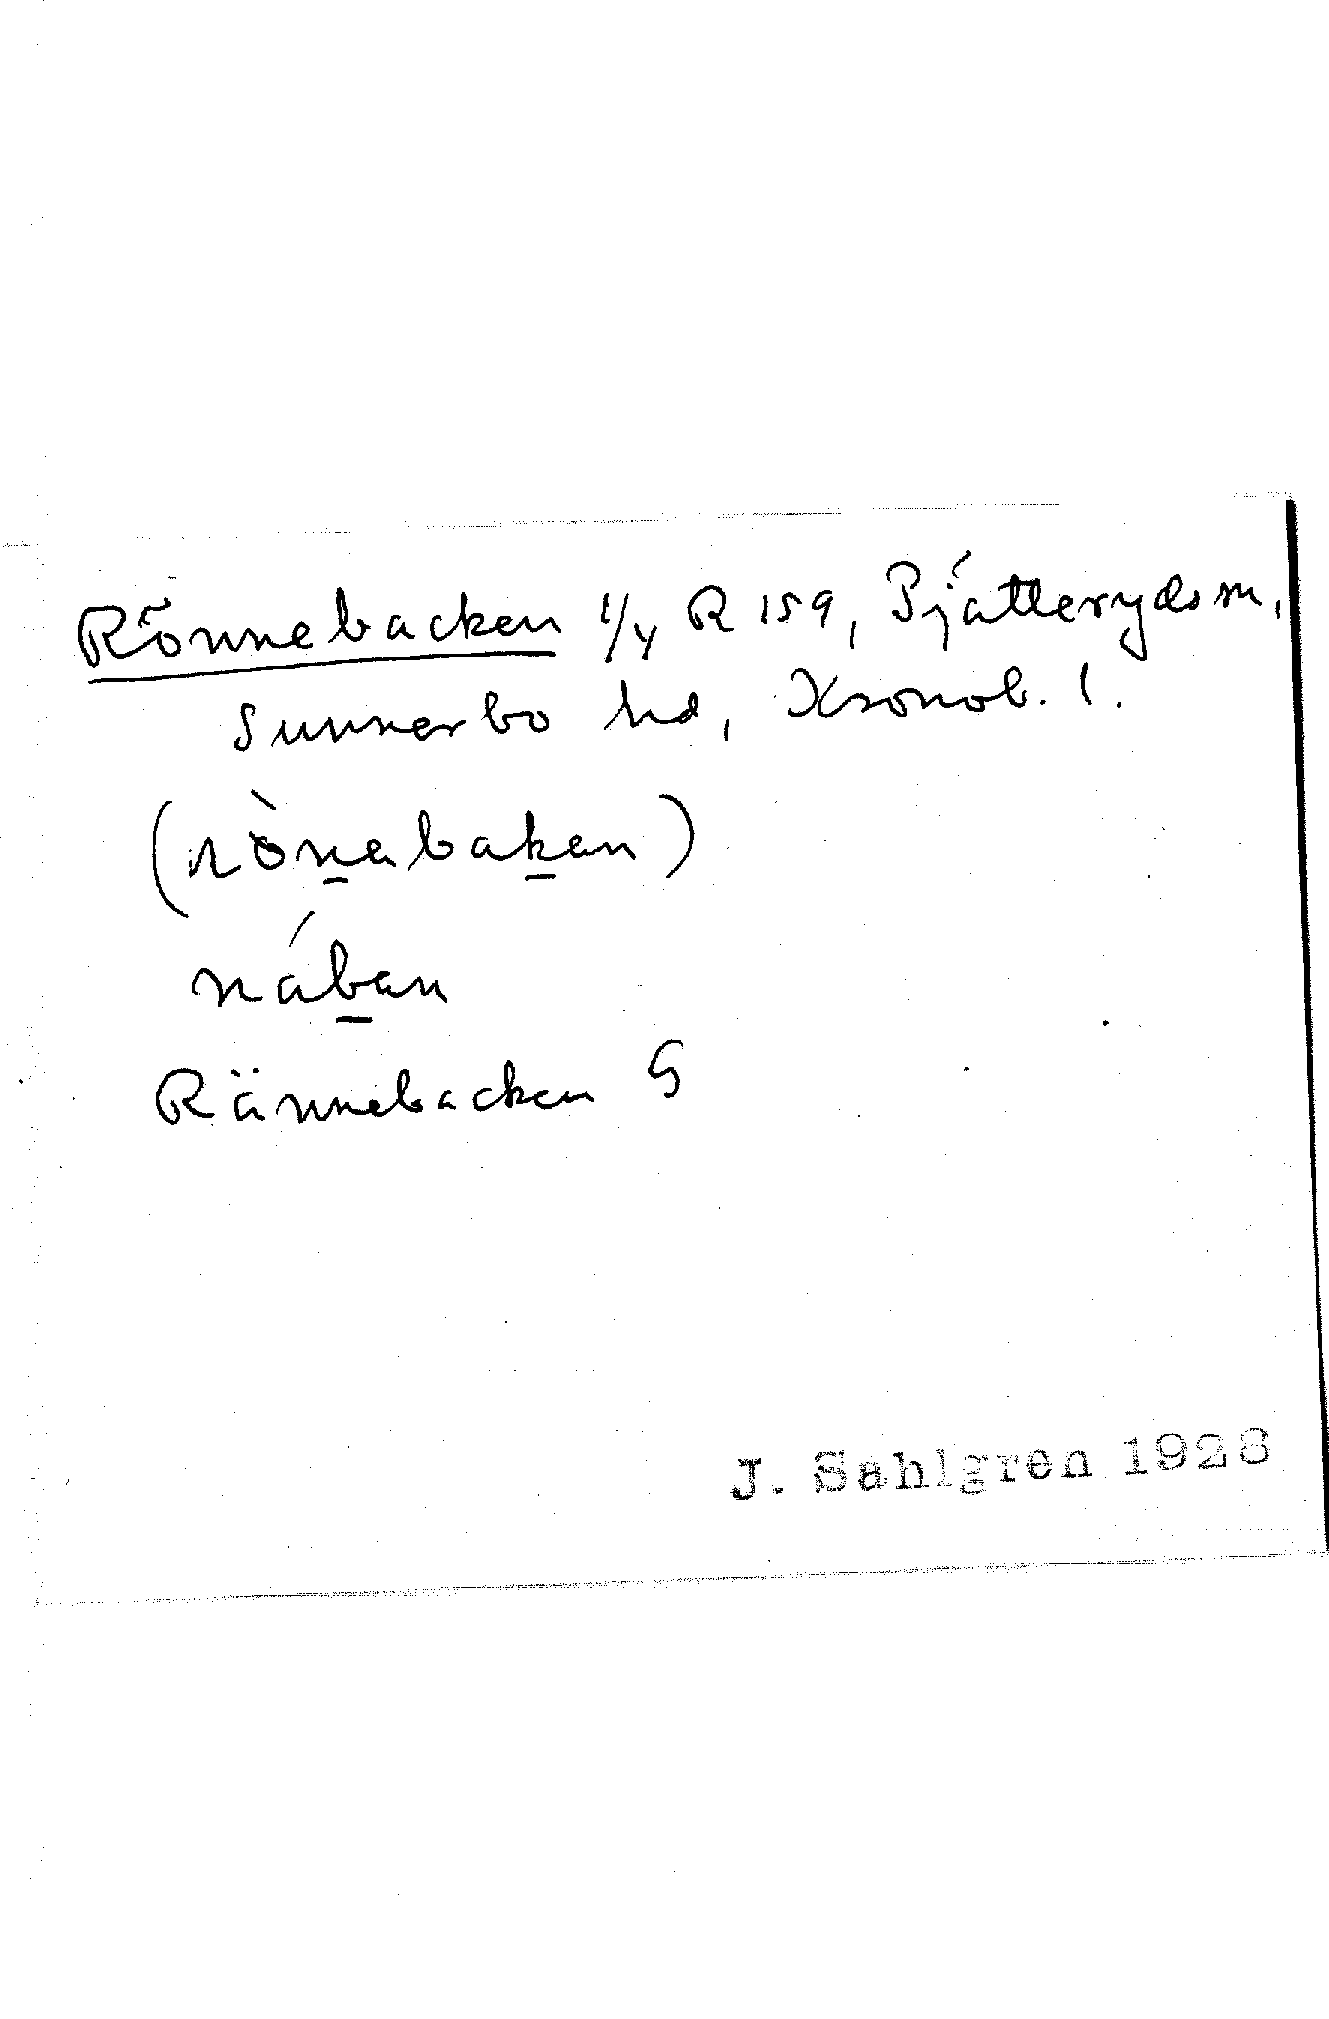 Rönnebacken 1/4 R 159, Pjätteryds sn,
Sunnerbo hd, Kronob. l.
(rònabakan)
nában
Rännebacken G
J. Sahlgren 1928